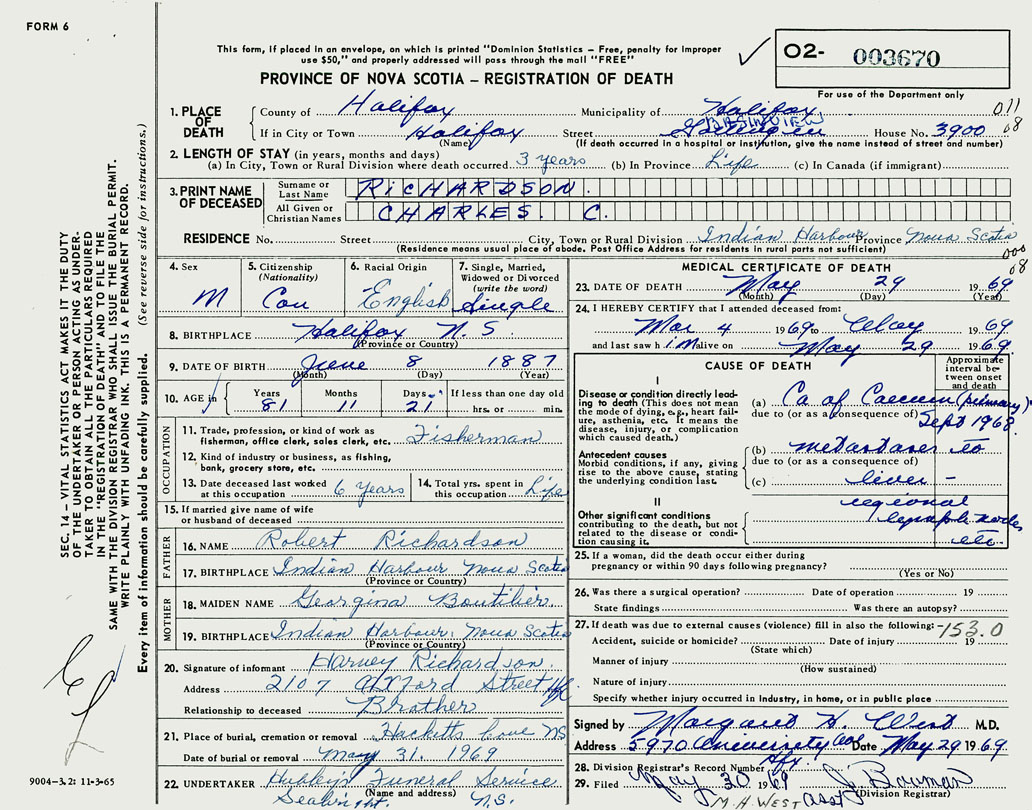 FORM 6
This form, if placed in an envelope, on which is printed "Dominion Statistics – Free, penalty for improper
use $50," and properly addressed will pass through the mail "FREE"
PROVINCE OF NOVA SCOTIA – REGISTRATION OF DEATH
O2- 003670
For use of the Department only
1. PLACE OF DEATH
County of Halifax Municipality of Halifax 011
BASINVIEW
If in City or Town Halifax Street House No. 3900 08
(Name) (If death occurred in a hospital or institution, give the name instead of street and number)
2. LENGTH OF STAY (in years, months and days)
(a) In City, Town or Rural Division where death occurred 3 years (b) In Province Life (c) In Canada (if immigrant)
3. PRINT NAME OF DECEASED
Surname or Last Name RICHARDSON.
All Given or Christian Names CHARLES. C.
RESIDENCE No. Street City, Town or Rural Division Indian Harbour Province Nova Scotia
(Residence means usual place of abode. Post Office Address for residents in rural parts not sufficient) 000
08
4. Sex M
5. Citizenship (Nationality) Can
6. Racial Origin English
7. Single, Married, Widowed or Divorced (write the word) Single
8. BIRTHPLACE Halifax N.S.
(Province or Country)
9. DATE OF BIRTH June 8 1887
(Month) (Day) (Year)
10. AGE in Years 81 Months 11 Days 21 If less than one day old hrs. or min.
OCCUPATION
11. Trade, profession, or kind of work as fisherman, office clerk, sales clerk, etc. Fisherman
12. Kind of industry or business, as fishing, bank, grocery store, etc.
13. Date deceased last worked at this occupation 6 years
14. Total yrs. spent in this occupation Life
15. If married give name of wife or husband of deceased
FATHER
16. NAME Robert Richardson
17. BIRTHPLACE Indian Harbour Nova Scotia
(Province or Country)
MOTHER
18. MAIDEN NAME Georgina Boutilier.
19. BIRTHPLACE Indian Harbour, Nova Scotia
(Province or Country)
20. Signature of informant Harvey Richardson.
Address 2107 Oxford Street Hfx
Relationship to deceased Brother
21. Place of burial, cremation or removal Hacketts Cove NS
Date of burial or removal May 31. 1969
22. UNDERTAKER Hubley's Funeral Service
(Name and address)
N.S.
MEDICAL CERTIFICATE OF DEATH
23. DATE OF DEATH May 29 1969
(Month) (Day) (Year)
24. I HEREBY CERTIFY that I attended deceased from:
Mar 4 1969 to 1969
and last saw h im alive on May 29 1969.
CAUSE OF DEATH
Approximate interval between onset and death
I
Disease or condition directly leading to death (This does not mean the mode of dying, e.g., heart failure, asthenia, etc. It means the disease, injury, or complication which caused death.)
(a) Ca of Caecum (primary)
due to (or as a consequence of) Sept 1968
Antecedent causes
Morbid conditions, if any, giving rise to the above cause, stating the underlying condition last.
(b) metastases to
due to (or as a consequence of)
(c) liver –
II
Other significant conditions contributing to the death, but not related to the disease or condition causing it.
regional
lymph nodes
etc.
25. If a woman, did the death occur either during
pregnancy or within 90 days following pregnancy?
(Yes or No)
26. Was there a surgical operation? Date of operation 19
State findings Was there an autopsy?
27. If death was due to external causes (violence) fill in also the following: -153.0
Accident, suicide or homicide? Date of injury 19
(State which)
Manner of injury
(How sustained)
Nature of injury
Specify whether injury occurred in Industry, in home, or in public place
Signed by Margaret H. West M.D.
Address 5970 University Ave Date May 29 1969.
Hfx
28. Division Registrar's Record Number
29. Filed May 30 1969 J. Bauman
(Division Registrar)
M.H. WEST Asst
SEC. 14 – VITAL STATISTICS ACT MAKES IT THE DUTY
OF THE UNDERTAKER OR PERSON ACTING AS UNDER-
TAKER TO OBTAIN ALL THE PARTICULARS REQUIRED
IN THE "REGISTRATION OF DEATH" AND TO FILE THE
SAME WITH THE DIVISION REGISTRAR WHO SHALL ISSUE THE BURIAL PERMIT.
WRITE PLAINLY WITH UNFADING INK. THIS IS A PERMANENT RECORD.
Every item of information should be carefully supplied. (See reverse side for instructions.)
9004-3.2: 11-3-65